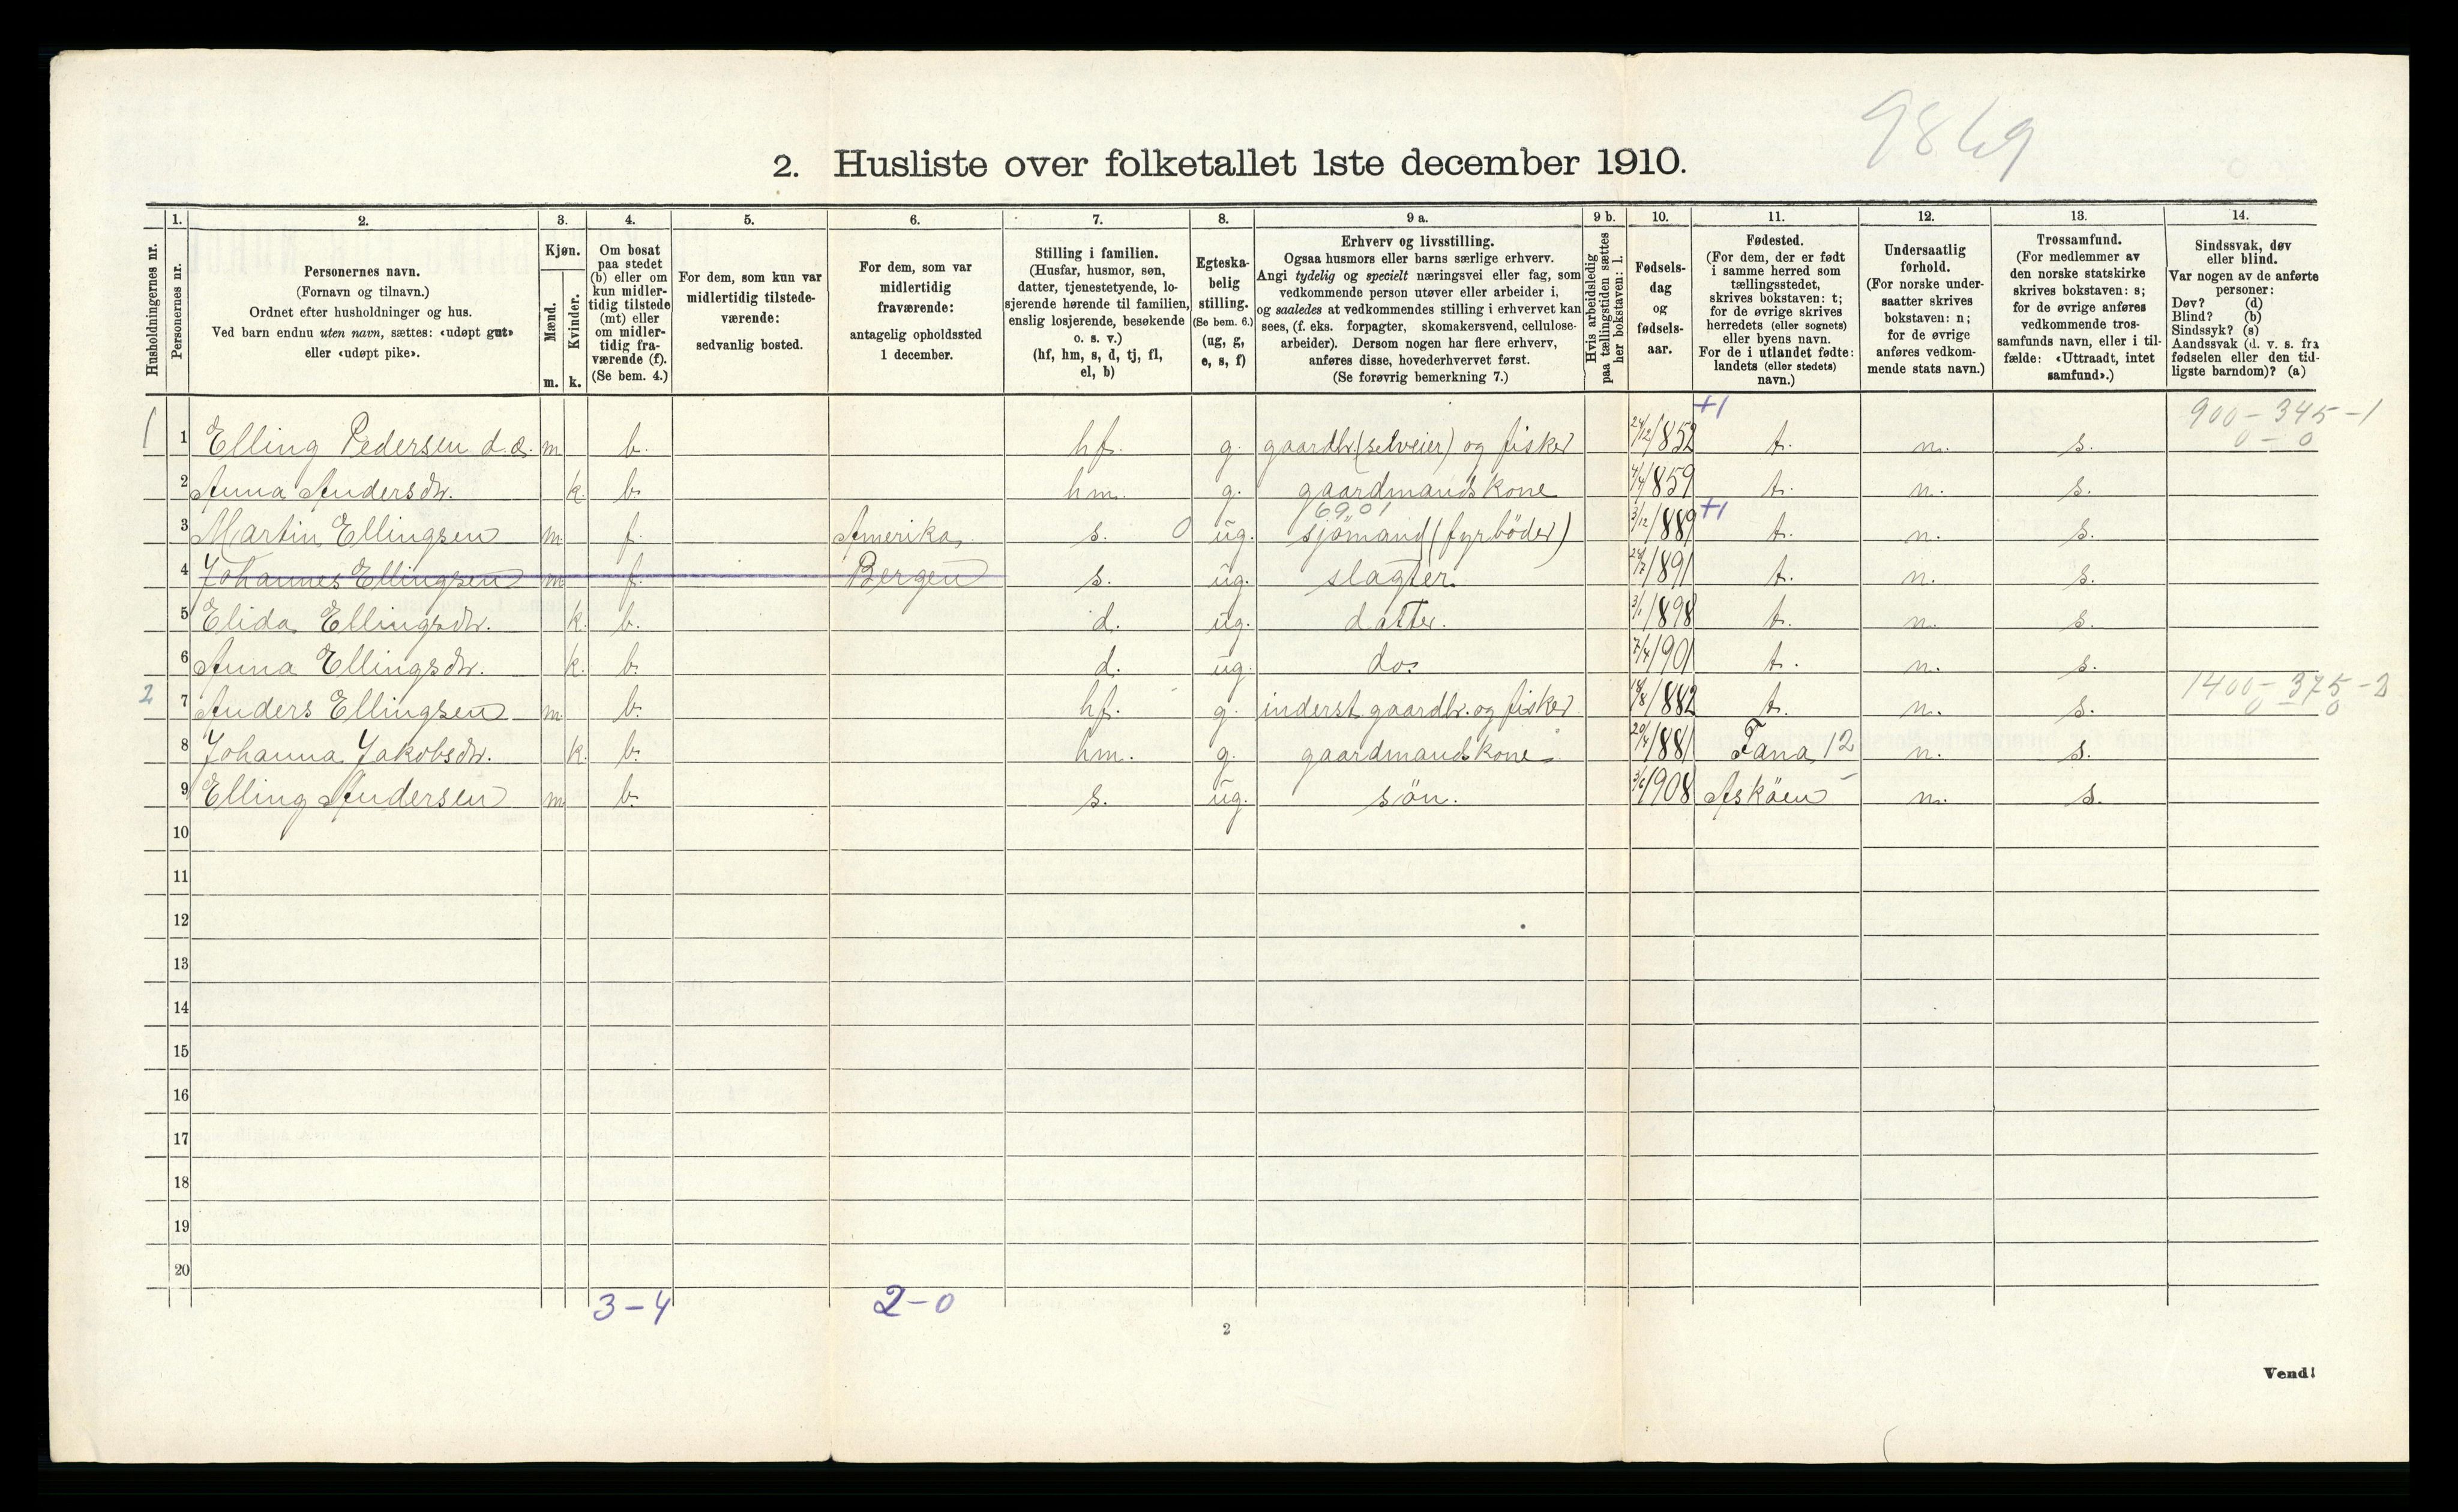 9869
2. Husliste over folketallet 1ste december 1910.
Husholdningernes nr.
1. Personernes nr.
2. Personernes navn. (Fornavn og tilnavn.) Ordnet efter husholdninger og hus. Ved barn endnu uten navn, sættes: «udøpt gut» eller «udøpt pike».
3. Kjøn. Mænd. m. Kvinder. k.
4. Om bosat paa stedet (b) eller om kun midler- tidig tilstede (mt) eller om midler- tidig fra- værende (f). (Se bem. 4.)
5. For dem, som kun var midlertidig tilstede- værende: sedvanlig bosted.
6. For dem, som var midlertidig fraværende: antagelig opholdssted 1 december.
7. Stilling i familien. (Husfar, husmor, søn, datter, tjenestetyende, lo- sjerende hørende til familien, enslig losjerende, besøkende o. s. v.) (hf, hm, s, d, tj, fl, el, b)
8. Egteska- belig stilling. (Se bem. 6.) (ug, g, e, s, f)
9 a. Erhverv og livsstilling. Ogsaa husmors eller barns særlige erhverv. Angi tydelig og specielt næringsvei eller fag, som vedkommende person utøver eller arbeider i, og saaledes at vedkommendes stilling i erhvervet kan sees, (f. eks. forpagter, skomakersvend, cellulose- arbeider). Dersom nogen har flere erhverv, anføres disse, hovederhvervet først. (Se forøvrig bemerkning 7.)
9 b. Hvis arbeidsledig paa tællingstiden sættes her bokstaven: l.
10. Fødsels- dag og fødsels- aar.
11. Fødested. (For dem, der er født i samme herred som tællingsstedet, skrives bokstaven: t; for de øvrige skrives herredets (eller sognets) eller byens navn. For de i utlandet fødte: landets (eller stedets) navn.)
12. Undersaatlig forhold. (For norske under- saatter skrives bokstaven: n; for de øvrige anføres vedkom- mende stats navn.)
13. Trossamfund. (For medlemmer av den norske statskirke skrives bokstaven: s; for de øvrige anføres vedkommende tros- samfunds navn, eller i til- fælde: «Uttraadt, intet samfund».)
14. Sindssvak, døv eller blind. Var nogen av de anførte personer: Døv? (d) Blind? (b) Sindssyk? (s) Aandssvak (d. v. s. fra fødselen eller den tid- ligste barndom)? (a)
+1 900 - 345 - 1
1 1 Elling Pedersen d.æ. m b. hf. g. gaardbr. (selveier) og fisker 24/12 1852 t. n. s. 0 - 0
2 Anna Andersdtr. k. b. hm. g. gaardmandskone 4/4 1859 t. n. s.
6901 +1
3 Martin Ellingsen m f. Amerika s. 0 ug. sjömand (fyrböder) 3/12 1889 t. n. s.
4 Johannes Ellingsen m f. Bergen s. ug. slagter. 1891 t. n. s.
5 Elida Ellingsdtr. k. b. d. ug. datter. 3/1 1898 t. n. s.
6 Anna Ellingsdtr. k. b. d. ug. do. 7/4 1901 t. n. s.
1400 - 375 - 2
2 7 Anders Ellingsen m b. hf. g. inderst gaardbr. og fisker 18/8 1882 t. n. s. 0 0
8 Johanna Jakobsdtr. k. b. hm. g. gaardmandskone 20/4 1881 Fana 12 n. s.
9 Elling Andersen m b. s. ug. sön. 3/6 1908 Asköen n. s.
10
11
12
13
14
15
16
17
18
19
20
3 - 4 2 - 0
2
Vend!